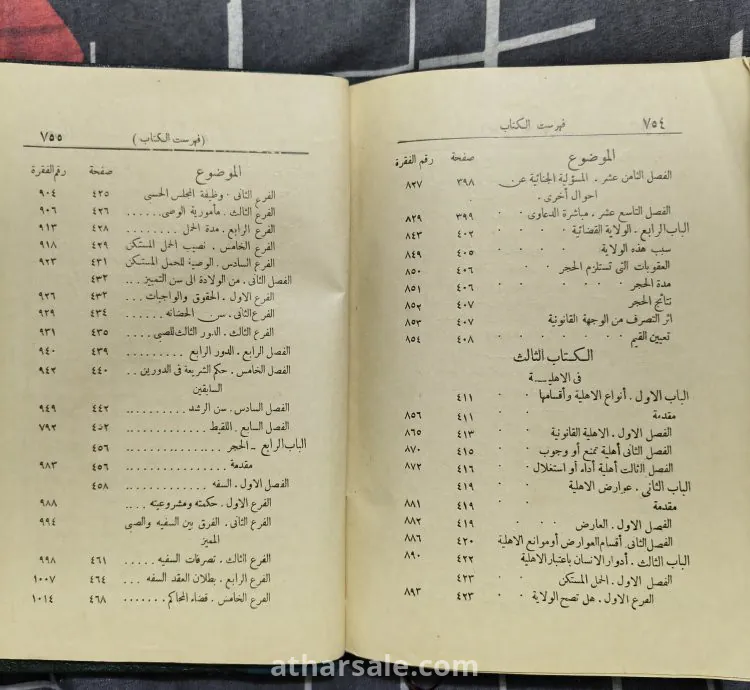 ٧٥٤ فهرست الكتاب
الموضوع صفحة رقم الفقرة
الفصل الثامن عشر . المسؤلية الجنائية عن ٣٩٨ ٨٢٧
احوال أخرى .
الفصل التاسع عشر . مباشرة الدعاوى ٣٩٩ ٨٢٩
الباب الرابع . الولاية القضائية ٤٠٢ ٨٤٣
سبب هذه الولاية ٤٠٥ ٨٤٩
العقوبات التى تستلزم الحجر ٤٠٦ ٨٥٠
مدة الحجر ٤٠٦ ٨٥١
نتائج الحجر ٤٠٧ ٨٥٢
اثر التصرف من الوجهة القانونية ٤٠٧ ٨٥٣
تعيين القيم ٤٠٨ ٨٥٤
الكتاب الثالث
فى الاهلية
الباب الاول . أنواع الاهلية وأقسامها ٤١١
مقدمة ٤١١ ٨٥٦
الفصل الاول . الاهلية القانونية ٤١٣ ٨٦٥
الفصل الثانى أهلية تمتع أو وجوب ٤١٥ ٨٧٠
الفصل الثالث أهلية أداء أو استغلال ٤١٦ ٨٧٢
الباب الثانى . عوارض الاهلية ٤١٩
مقدمة ٤١٩ ٨٨١
الفصل الاول . العارض ٤١٩ ٨٨٢
الفصل الثانى أقسام العوارض أوموانع الاهلية ٤٢٠ ٨٨٦
الباب الثالث . أدوار الانسان باعتبار الاهلية ٤٢٢ ٨٩٠
الفصل الاول . الحمل المستكن ٤٢٣
الفرع الاول . هل تصح الولاية ٤٢٣ ٨٩٣
(فهرست الكتاب) ٧٥٥
الموضوع صفحة رقم الفقرة
الفرع الثانى . وظيفة المجلس الحسبى ٤٢٥ ٩٠٤
الفرع الثالث . مأمورية الوصى ...... ٤٢٦ ٩٠٦
الفرع الرابع . مدة الحمل ........ ٤٢٨ ٩١٣
الفرع الخامس . نصيب الحمل المستكن ٤٢٩ ٩١٨
الفرع السادس . الوصية للحمل المستكن ٤٣١ ٩٢٣
الفصل الثانى . من الولادة الى سن التمييز .. ٤٣٢
الفرع الاول . الحقوق والواجبات ... ٤٣٢ ٩٢٦
الفرع الثانى . سن الحضانه ...... ٤٣٤ ٩٢٩
الفرع الثالث . الدور الثالث للصبى .... ٤٣٥ ٩٣١
الفصل الرابع . الدور الرابع ......... ٤٣٩ ٩٤٠
الفصل الخامس . حكم الشريعة فى الدورين .. ٤٤٠ ٩٤٢
السابقين
الفصل السادس . سن الرشد .......... ٤٤٢ ٩٤٩
الفصل السابع . اللقيط ............ ٤٥٢ ٧٩٢
الباب الرابع ــ الحجر .............. ٤٥٦
مقدمة ............... ٤٥٦ ٩٨٣
الفصل الاول . السفه ............ ٤٥٨
الفرع الاول . حكمته ومشروعيته .... ٩٨٨
الفرع الثانى . الفرق بين السفيه والصبى ٩٩٤
المميز
الفرع الثالث . تصرفات السفيه ..... ٤٦١ ٩٩٨
الفرع الرابع . بطلان العقد السفه ... ٤٦٤ ١٠٠٧
الفرع الخامس . قضاء المحاكم ....... ٤٦٨ ١٠١٤
atharsale.com